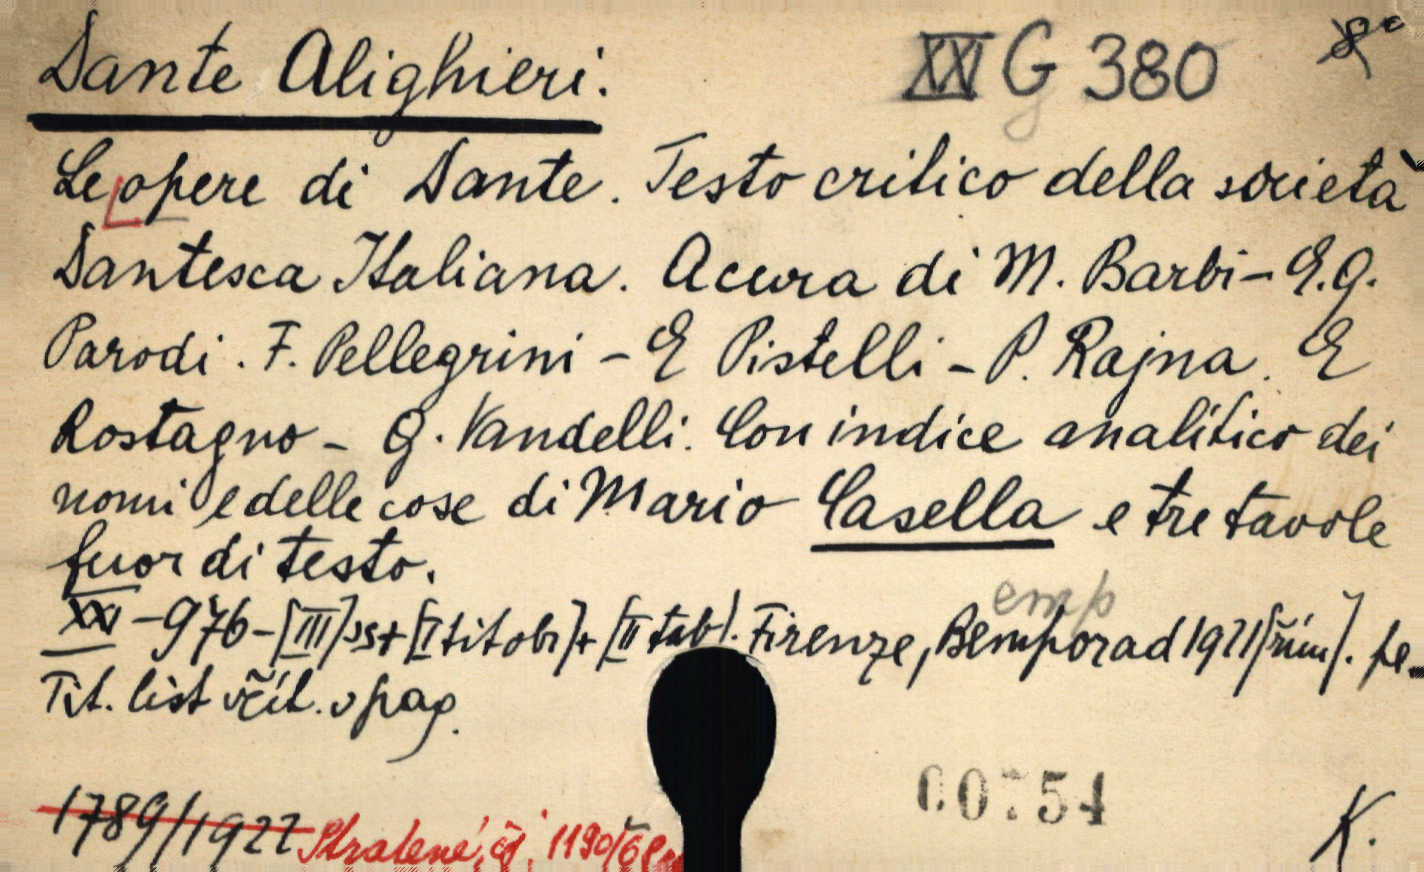 Dante Alighieri. XXI G 380 8°
Le opere di Dante. Testo critico della società
Dantesca Italiana. A cura di M. Barbi - E.G.
Parodi. F. Pellegrini - E Pistelli - P. Rajna. E
Rostagno - G. Vandelli. Con indice analitico dei
nomi e delle cose di Mario Casella e tre tavole
fuor di testo.
emp
XXXI - 976 - [III] ss + [I tit obr] + [II tab]. Firenze, Bemporad 1921 [řím]. pe-
Tit. list včít. v pag.
00754
1789/1922 Ztratené, čj. 1190/
K.